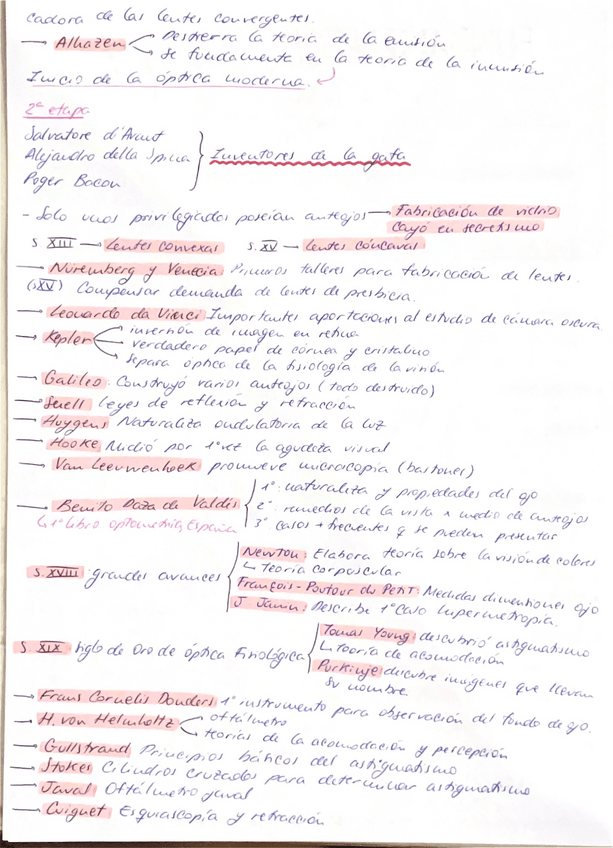 cadora de las lentes convergentes.
→ Alhazen Destierra la teoría de la emisión
se fundamenta en la teoría de la inmisión
Inicio de la óptica moderna.
2ª etapa
Salvatore d'Amut
Alejandro della Spina Inventores de la gafa
Roger Bacon
- Solo unos privilegiados poseían anteojos → Fabricación de vidrio
cayó en secretismo
S XIII → Lentes convexas S. XV - Lentes cóncavas
→ Nüremberg y Venecia Primeros talleres para fabricación de lentes.
(s XV) Compensar demanda de lentes de presbicia.
→ Leonardo da Vinci Importantes aportaciones al estudio de cámara oscura
→ Kepler inversión de imagen en retina
verdadero papel de córnea y cristalino
separa óptica de la fisiología de la visión
→ Galileo: Construyó varios anteojos (todo destruido)
→ Snell leyes de reflexión y refracción
→ Huygens Naturaliza ondulatoria de la luz
→ Hooke Midió por 1ª vez la agudeza visual
→ Van Leeuwenhoek promueve microscopia (bastones)
→ Benito Daza de Valdés 1º: naturaleza y propiedades del ojo
2º: remedios de la vista x medio de anteojos
↳ 1º libro optometría España 3º casos + frecuentes q se pueden presentar
S. XVIII grandes avances Newton: Elabora teoría sobre la visión de colores
↳ teoría corpuscular
François-Poutour du Petit: Medidas dimensiones ojo
J Janin: Describe 1º caso hipermetropía.
S. XIX Siglo de Oro de óptica Fisiológica Tomas Young: descubrió astigmatismo
↳ teoría de acomodación
Purkinje: descubre imágenes que llevan
su nombre.
→ Frans Cornelis Donders 1º instrumento para observación del fondo de ojo.
→ H. von Helmholtz oftálmetro
teorías de la acomodación y percepción
→ Gullstrand Principios básicos del astigmatismo
→ Stokes Cilindros cruzados para determinar astigmatismo
→ Javal Oftálmetro javal
→ Cuignet Esquiascopía y refracción